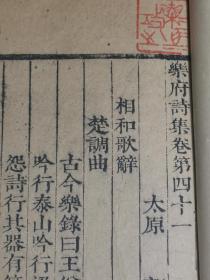 樂府詩集卷第四十一
太原
相和歌辭
楚調曲
古今樂錄曰王僧
吟行泰山吟行梁
怨詩行其器有笙